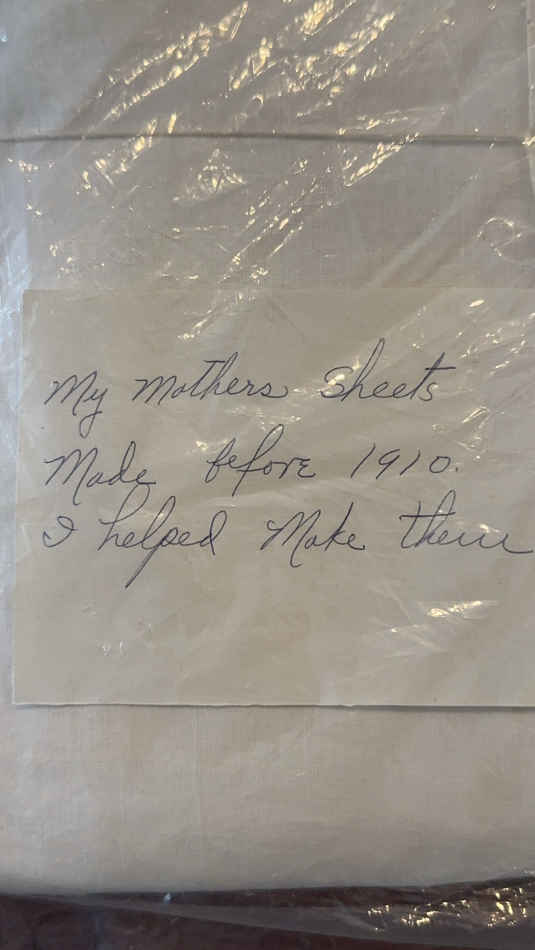 My mothers sheets
Made before 1910.
I helped Make them